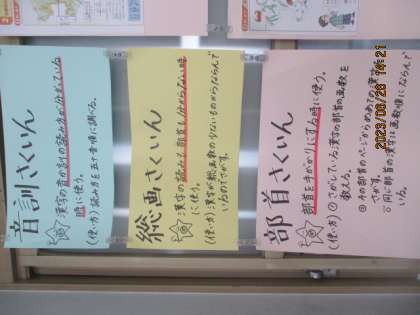 音訓さくいん
漢字の音か訓の読み方が分かっている
時に使う。
(使い方)読み方を五十音順に調べる。
総画さくいん
漢字の読み方も部首も分からない時
に使う。
(使い方)漢字が総画数の少ないものからならんで
いるのでさがす。
部首さくいん
部首を手がかりにする時に使う。
(使い方)①さがしている漢字の部首の画数を
数える。
②その部首のページからめあての漢字を
さがす。
○同じ部首の漢字は画数順にならんで
いる。
2023/06/26 14:21